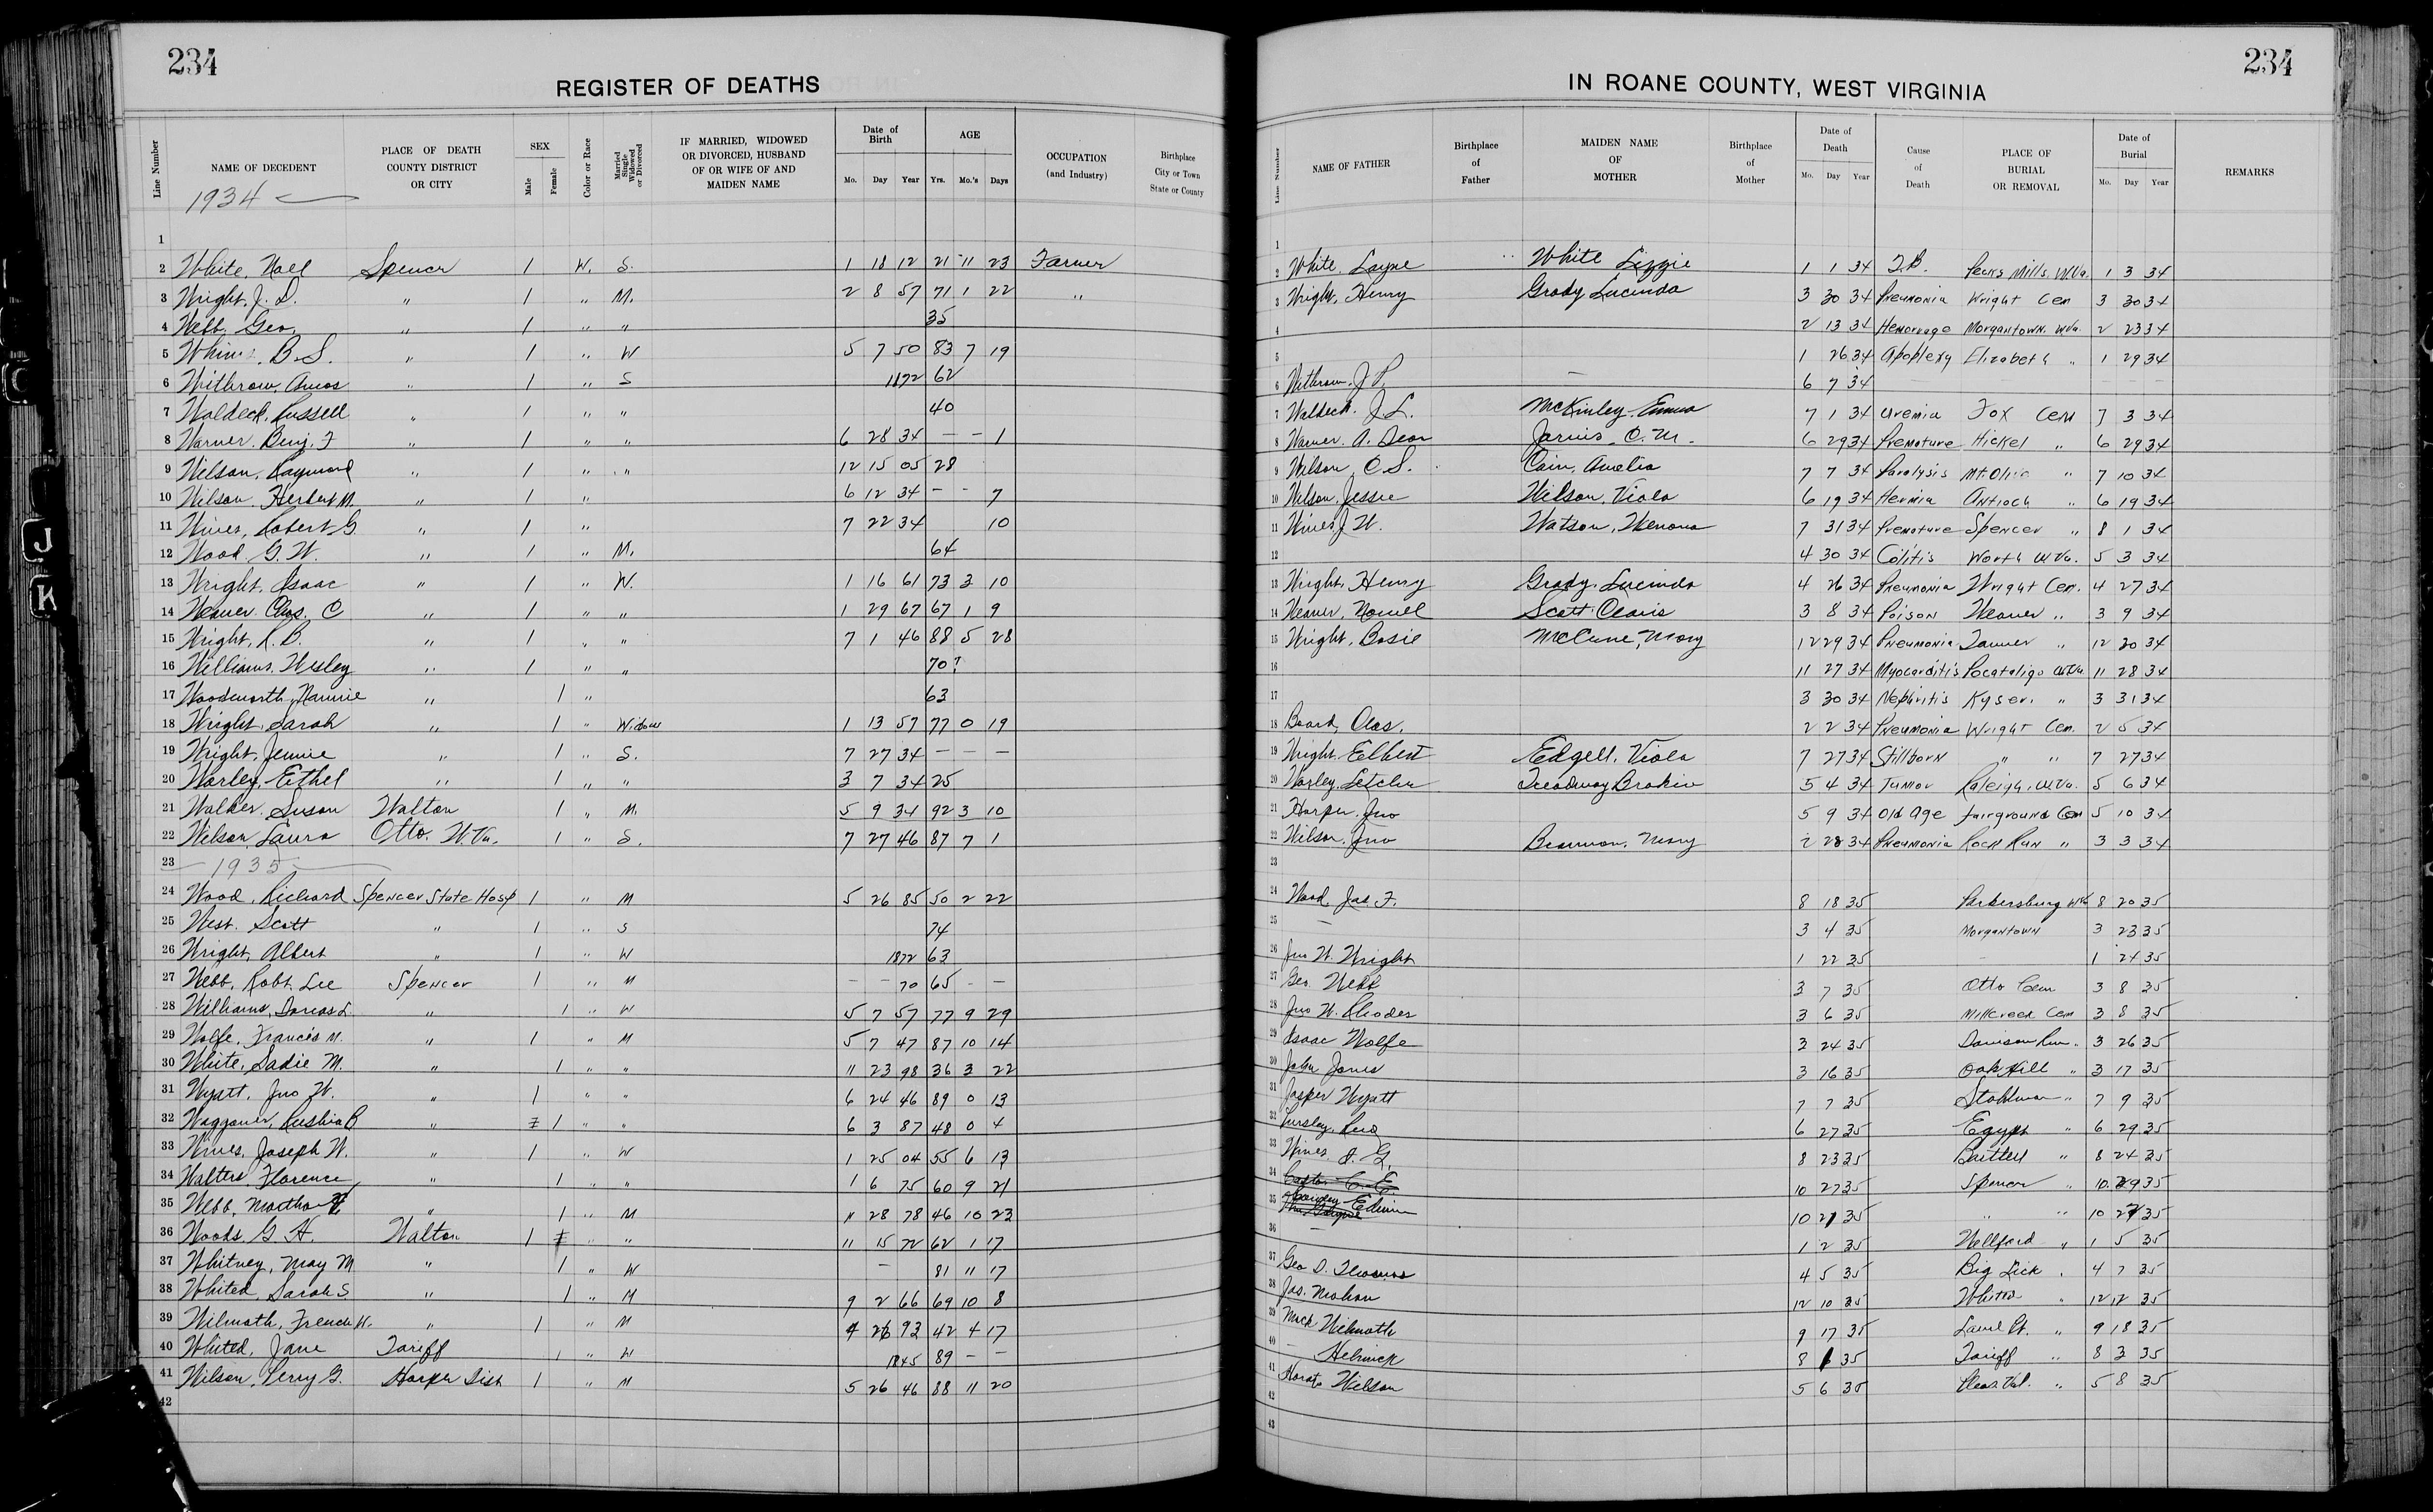 234
REGISTER OF DEATHS
Line Number NAME OF DECEDENT PLACE OF DEATH COUNTY DISTRICT OR CITY SEX Male Female Color or Race Married Single Widowed or Divorced IF MARRIED, WIDOWED OR DIVORCED, HUSBAND OF OR WIFE OF AND MAIDEN NAME Date of Birth Mo. Day Year AGE Yrs. Mo.'s Days OCCUPATION (and Industry) Birthplace City or Town State or County
1934
1
2 White, Noel Spencer 1 W. S. 1 18 12 21 11 23 Farmer
3 Wright, J. L. " 1 " M. 2 8 57 71 1 22 "
4 Webb, Geo. " 1 " " 35
5 B. S. " 1 " W 5 7 50 83 7 19
6 Withrow, Amos " 1 " S 1872 62
7 Waldeck, Russell " 1 " " 40
8 Warner, Benj. F " 1 " " 6 28 34 – – 1
9 Wilson, Raymond " 1 " " 12 15 05 28
10 Wilson, Herbert M. " 1 " 6 12 34 – – 7
11 Wines, Robert G. " 1 " 7 22 34 10
12 Wood G. W. " 1 " M. 64
13 Wright, Isaac " 1 " W. 1 16 61 73 3 10
14 Weaver, Chas. C " 1 " " 1 29 67 67 1 9
15 Wright, R. B. " 1 " " 7 1 46 88 5 28
16 Williams, Wesley " 1 " " 70?
17 Woodworth, Nannie " 1 " 63
18 Wright, Sarah " 1 " Widow 1 13 57 77 0 19
19 Wright, Jennie " 1 " S. 7 27 34 – – –
20 Worley, Ethel " 1 " " 3 7 34 25
21 Walker, Susan Walton 1 " M. 5 9 34 92 3 10
22 Wilson, Laura Otto, W. Va. 1 " S. 7 27 46 87 7 1
23 – 1935 –
24 Wood, Richard Spencer State Hosp 1 " M 5 26 85 50 2 22
25 West, Scott " 1 " S 74
26 Wright, Albert " 1 " W 1872 63
27 Webb, Robt. Lee Spencer 1 " M – – 70 65 – –
28 Williams, Dorcas L. " 1 " W 5 7 57 77 9 29
29 Wolfe, Francis M. " 1 " M 5 7 47 87 10 14
30 White, Sadie M. " 1 " " 11 23 98 36 3 22
31 Wyatt, Jno W. " 1 " " 6 24 46 89 0 13
32 Waggoner, B " 1 " " 6 3 87 48 0 4
33 Wines, Joseph W. " 1 " W 1 25 04 55 6 13
34 Walters Florence " 1 " " 1 6 75 60 9 21
35 Webb, Martha " 1 " M 11 28 78 46 10 23
36 Woods G. H. Walton 1 " " 11 15 72 62 1 17
37 Whitney, May M " 1 " W – 81 11 17
38 Whited, Sarah S. " 1 " M 9 2 66 69 10 8
39 Wilmoth, French W. " 1 " M 4 26 93 42 4 17
40 Whited, Jane Tariff 1 " W 1845 89 – –
41 Wilson, Perry G. Harper Dist 1 " M 5 26 46 88 11 20
42
234
IN ROANE COUNTY, WEST VIRGINIA
Line Number NAME OF FATHER Birthplace of Father MAIDEN NAME OF MOTHER Birthplace of Mother Date of Death Mo. Day Year Cause of Death PLACE OF BURIAL OR REMOVAL Date of Burial Mo. Day Year REMARKS
1
2 White, Layne White Lizzie 1 1 34 T.B. Pecks Mills, W.Va. 1 3 34
3 Wright, Henry Grady Lucinda 3 30 34 Pneumonia Wright Cem 3 30 34
4 2 13 34 Hemorrage Morgantown, W.Va. 2 23 34
5 1 26 34 Apoplexy Elizabeth " 1 29 34
6 Withrow, J. P. – 6 7 34
7 Waldeck, J. L. McKinley Emma 7 1 34 Uremia Fox Cem 7 3 34
8 Warner, A. Dean Jarvis, O. M. 6 29 34 Premature Hickel " 6 29 34
9 Wilson, C. S. Cain, Amelia 7 7 34 Paralysis Mt. Olive " 7 10 34
10 Wilson, Jessie Wilson, Viola 6 19 34 Hernia Antioch " 6 19 34
11 Wines, J. W. Watson, Wenona 7 31 34 Premature Spencer " 8 1 34
12 4 30 34 Colitis Worth W.Va. 5 3 34
13 Wright, Henry Grady, Lucinda 4 26 34 Pneumonia Wright Cem. 4 27 34
14 Weaver, Scott, 3 8 34 Poison Weaver " 3 9 34
15 Wright, Basil McCune, Mary 12 29 34 Pneumonia Tanner " 12 30 34
16 11 27 34 Myocarditis Pocataligo W.Va. 11 28 34
17 3 30 34 Nephritis Kyser, " 3 31 34
18 Board, Chas. 2 2 34 Pneumonia Wright Cem. 2 5 34
19 Wright, Elbert Edgell, Viola 7 27 34 Stillborn " " 7 27 34
20 Worley, Letcher Treadway 5 4 34 Tumor Raleigh, W.Va. 5 6 34
21 Harper, Jno 5 9 34 Old Age Fairground Cem 5 10 34
22 Wilson, Jno Mary 2 28 34 Pneumonia Rock Run " 3 3 34
23
24 Wood, Jas. F. 8 18 35 Parkersburg WVa 8 20 35
25 – 3 4 35 Morgantown 3 23 35
26 Jno W. Wright 1 22 35 – 1 24 35
27 Geo. Webb 3 7 35 Otto Cem 3 8 35
28 Jno W. Rhodes 3 6 35 Millcreek Cem 3 8 35
29 Isaac Wolfe 3 24 35 Davison Run " 3 26 35
30 John Jones 3 16 35 Oak Hill " 3 17 35
31 Jasper Wyatt 7 7 35 Stahlman " 7 9 35
32 6 27 35 Egypt " 6 29 35
33 Wines, J. G. 8 23 35 " 8 24 35
34 10 27 35 Spencer " 10 29 35
35 Edwin 10 21 35 " " 10 27 35
36 – 1 2 35 Wellford " 1 5 35
37 Geo D. Thomas 4 5 35 Big Lick " 4 7 35
38 Jas. 12 10 35 Whited " 12 12 35
39 Mack Wilmoth 9 17 35 Laurel Pt. " 9 18 35
40 – Helmick 8 1 35 Tariff " 8 3 35
41 Wilson 5 6 35 Pleas. Val. " 5 8 35
42
43
C
J
K